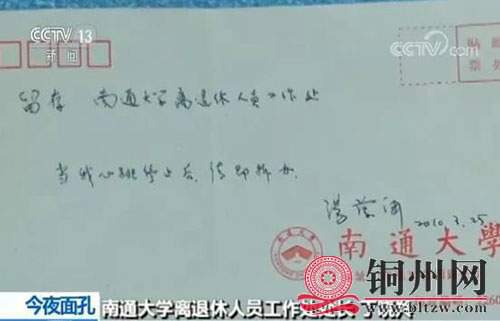 CCTV 13
新闻
CCTV.com
留存 南通大学离退休人员工作处
当我心跳停止后,请即拆
2010.3.25
南通大學
今夜面孔
南通大学离退休人员工作处
铜州网
www.bltzw.com